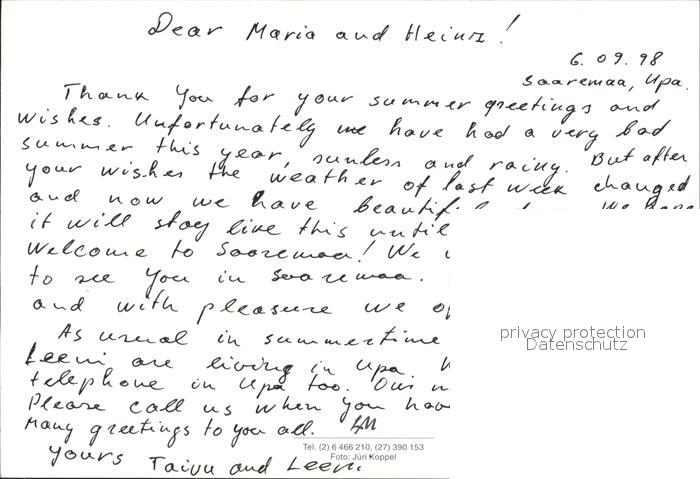 Dear Maria and Heinz!
6. 09. 98
Saaremaa, Upa.
Thank You for your summer greetings and
wishes. Unfortunately we have had a very bad
summer this year, sunless and rainy. But after
your wishes the weather of last week changed
and now we have
it will stay like this until
Welcome to Saaremaa! We
to see You in Saaremaa.
and with pleasure we
As usual in summertime
Leeni are living in Upa.
telephone in Upa too. Our
Please call us when You
Many greetings to you all.
Tel. (2) 6 466 210, (27) 390 153
Foto: Jüri Koppel
Yours Taivu and Leeni
privacy protection
Datenschutz